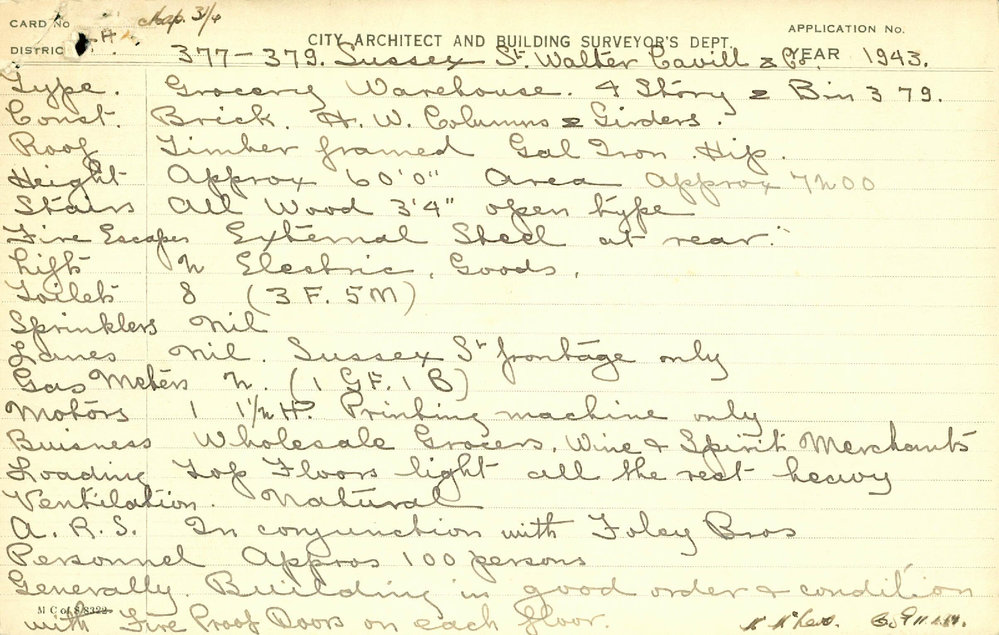 CARD No. Map. 31/4
APPLICATION No.
CITY ARCHITECT AND BUILDING SURVEYOR'S DEPT.
DISTRICT H YEAR 1943.
377-379. Sussex St. Walter Cavill & Co.
Type. Grocery Warehouse. 4 Story & Bin 379.
Const. Brick. H. W. Columns & Girders.
Roof Timber framed Gal Iron. Hip.
Height Approx 60'0" Area Approx 7200
Stairs All Wood 3'4" open type
Fire Escapes External Steel at rear.
Lifts 2 Electric, Goods,
Toilets 8 (3 F. 5 M)
Sprinklers Nil
Lanes Nil. Sussex St frontage only
Gas Meters 2. (1 GF. 1 B)
Motors 1 1 1/2 HP. Printing machine only
Buisness Wholesale Grocers, Wine & Spirit Merchants
Loading Top Floors light all the rest heavy
Ventilation. Natural
A. R. S. In conjunction with Foley Bros
Personnel Approx 100 persons
Generally. Building in good order & condition
M C of S 8322
with Fire Proof Doors on each floor.